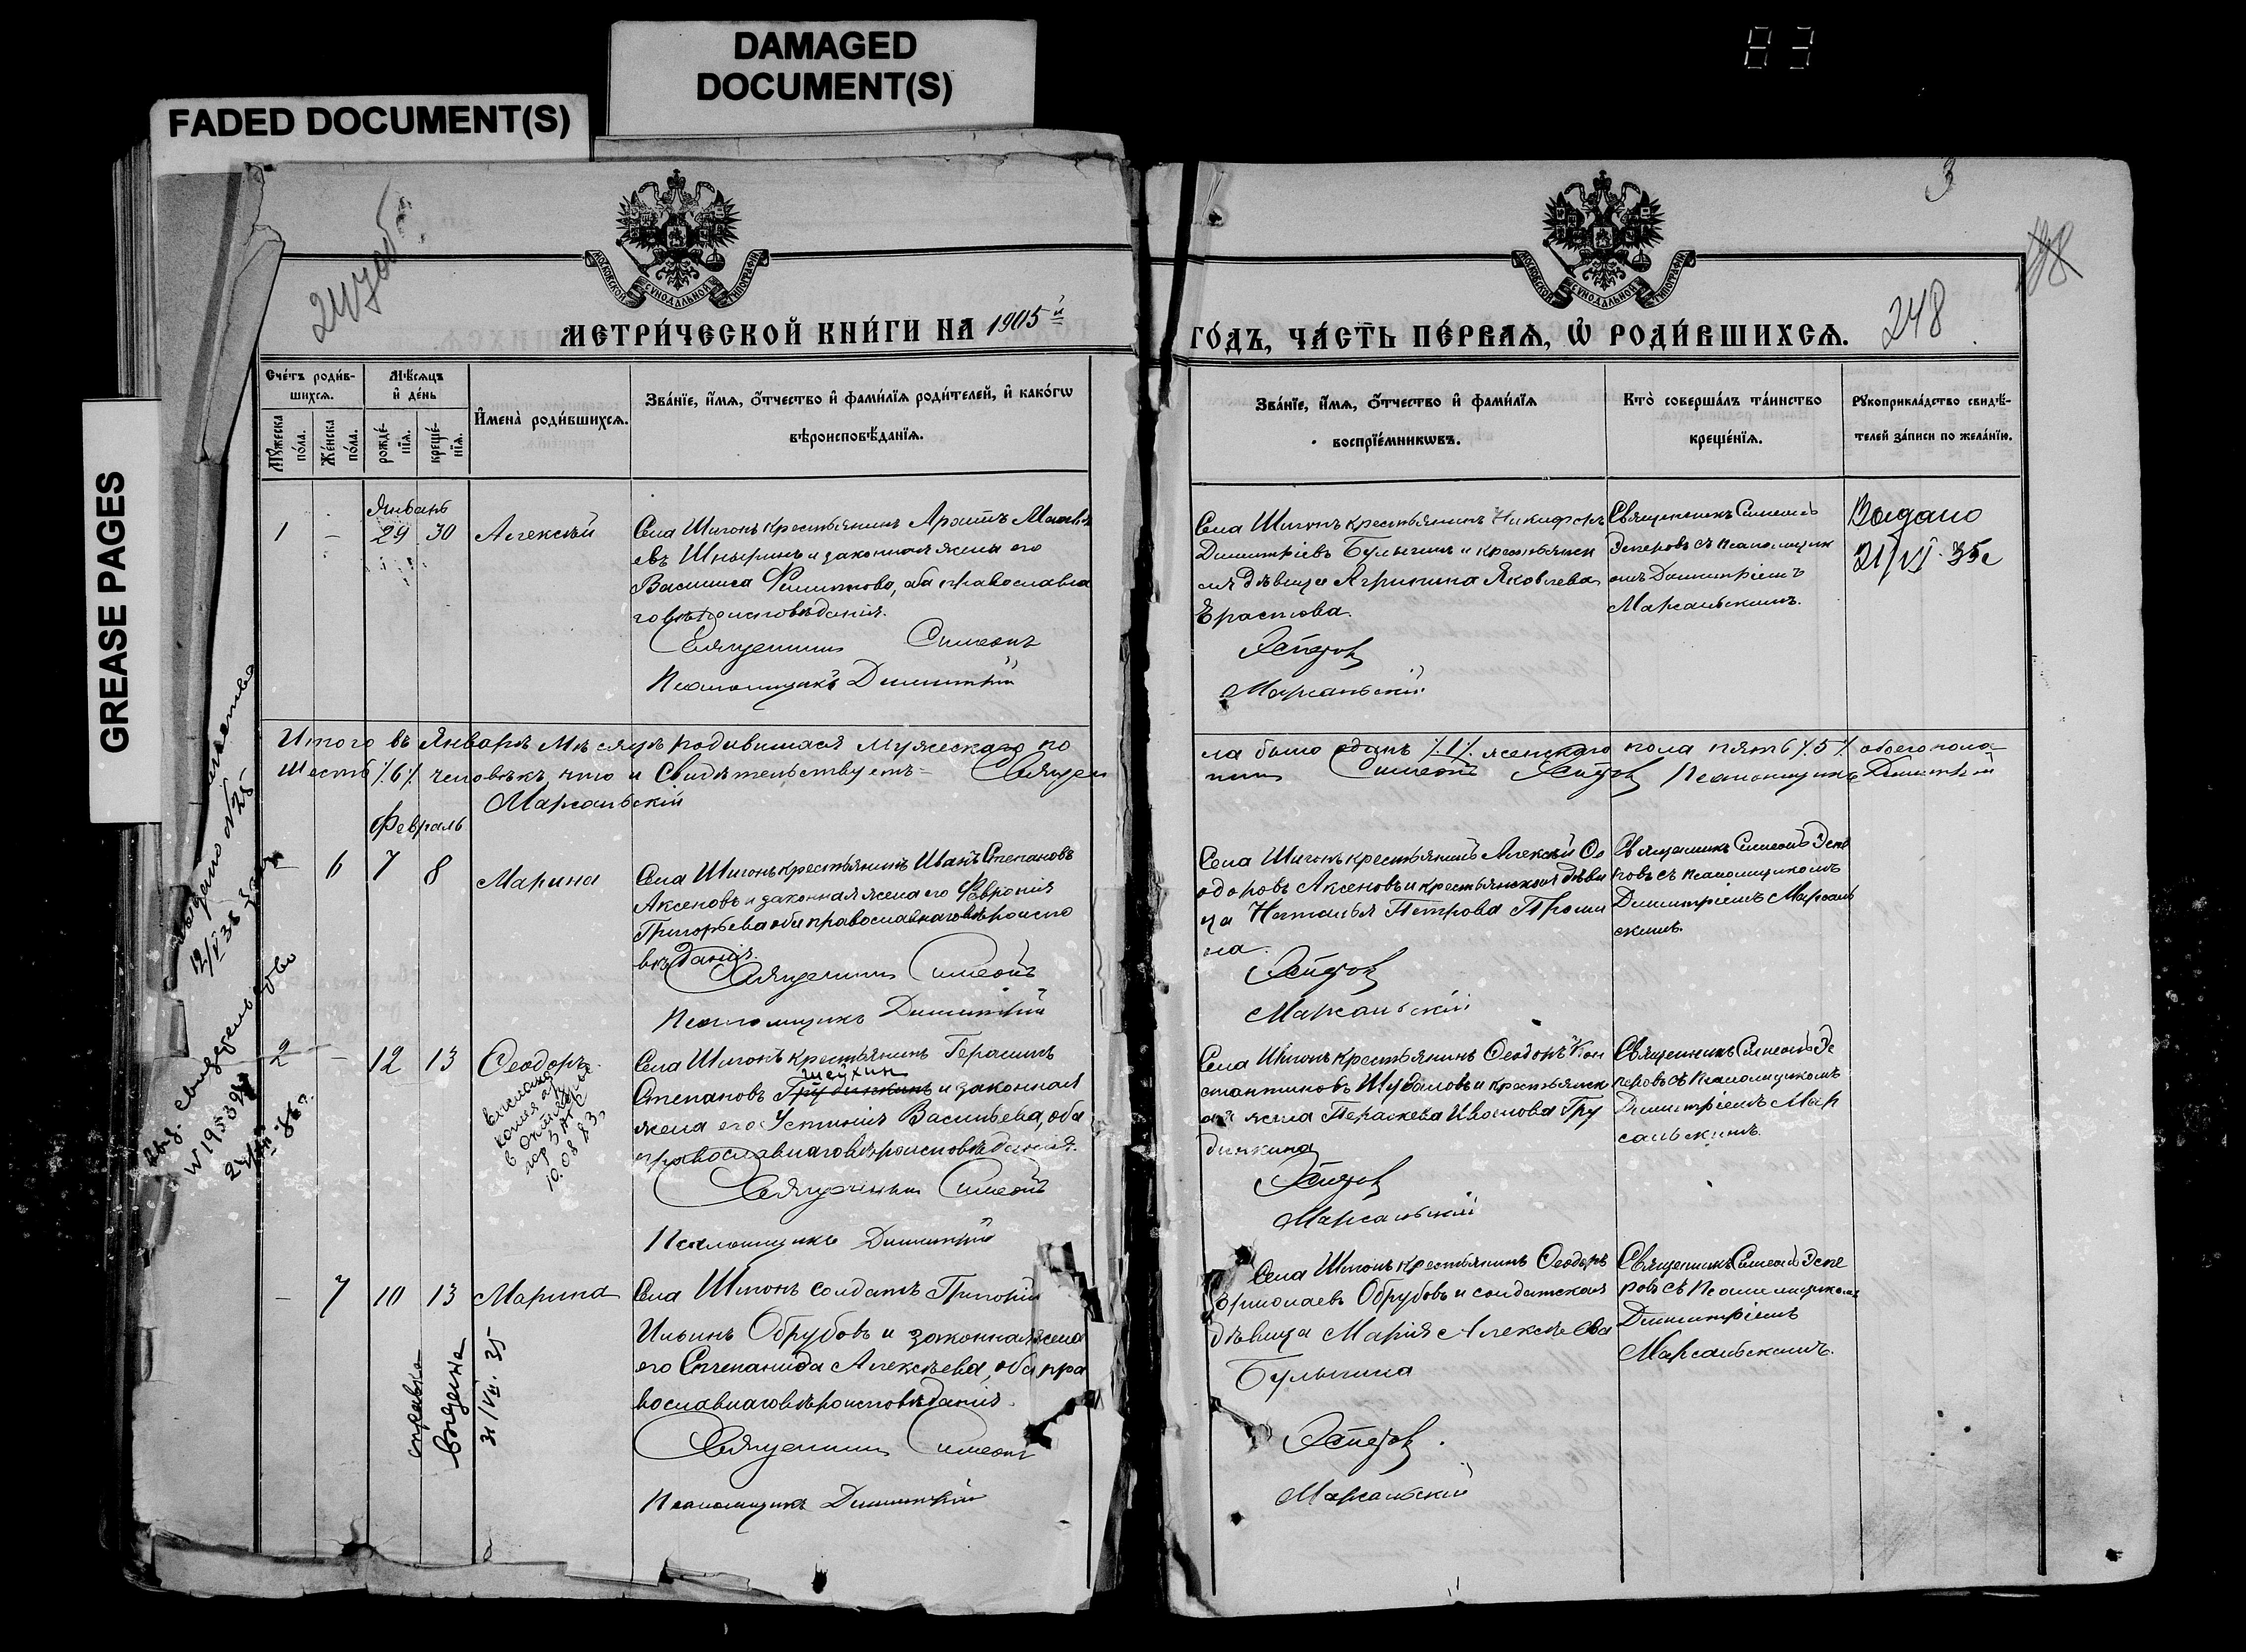 DAMAGED
DOCUMENT(S)
FADED DOCUMENT(S)
GREASE PAGES
83
3
38
248
МОСКОВСКОЙ СѴНОДАЛЬНОЙ ТИПОГРАФІИ
МОСКОВСКОЙ СѴНОДАЛЬНОЙ ТИПОГРАФІИ
МЕТРИ́ЧЕСКОЙ КНИ́ГИ НА 1905й
ГО́ДЪ, ЧА́СТЬ ПЕ́РВАѦ, Ѡ҆ РОДИ́ВШИХСѦ.
Сче́тъ роди́в-
шихсѧ.
Мꙋ́жеска
по́ла.
Же́нска
по́ла.
Мѣ́сѧцъ
и҆ де́нь
рожде́-
нїѧ.
креще́-
нїѧ.
И҆мена̀ роди́вшихсѧ.
Зва́нїе, и҆́мѧ, ѻ҆́тчество и҆ фами́лїѧ роди́телей, и҆ како́гѡ
вѣроисповѣ́данїѧ.
Зва́нїе, и҆́мѧ, ѻ҆́тчество и҆ фами́лїѧ
воспрїе́мникѡвъ.
Кто̀ соверша́лъ та́инство
креще́нїѧ.
Рꙋкоприкла́дство свидѣ́-
телей за́писи по жела́нїю.
Январь
1 - 29 30 Алексѣй
Села Шигонъ крестьянинъ
евъ Шныринъ и законная жена его
Василиса Филиппова, оба православна
го вѣроисповѣданія.
Священникъ Симеонъ
Псаломщикъ Димитрій
Села Шигонъ крестьянинъ Никифоръ
Димитріевъ Булыгинъ и крестьянск
ая дѣвица Агрипина Яковлева
Ерастова.
Эсперовъ
Марсальскій
Священникъ Симеонъ
Эсперовъ съ псаломщик
омъ Димитріемъ
Марсальскимъ.
Выдано
21/VI-35г
Итого въ Январѣ мѣсяцѣ родившихся мужескаго по
ла было одинъ /.1/. женскаго пола пять /.5/. обоего пола
шесть /.6/. человѣкъ, что и свидѣтельствуетъ- Священ
никъ Симеонъ Эсперовъ Псаломщикъ Димитрій
Марсальскій
Февраль
- 6 7 8 Марина
Села Шигонъ крестьянинъ Иванъ Степановъ
Аксеновъ и законная жена его Феврония
Григорьева оба православнаго вѣроиспо
вѣданія.
Священникъ Симеонъ
Псаломщикъ Димитрій
Села Шигонъ крестьянинъ Алексѣй Ѳе
одоровъ Аксеновъ и крестьянская дѣви
ца Наталья Петрова
на.
Эсперовъ
Марсальскій
Священникъ Симеонъ Эспе
ровъ съ псаломщикомъ
Димитріемъ Марсаль
скимъ.
2 - 12 13 Ѳеодоръ
выслана
копия
в
10.08.83
Села Шигонъ крестьянинъ Герасимъ
Шеухин
Степановъ Грудинкинъ и законная
жена его Устинія Васильева, оба
православнаго вѣроисповѣданія.
Священникъ Симеонъ
Псаломщикъ Димитрій
Села Шигонъ крестьянинъ Ѳеодоръ Кон
стантиновъ Шубаловъ и крестьянск
ая жена Параскева Иванова Гру
динкина
Эсперовъ
Марсальскій
Священникъ Симеонъ Эс
перовъ съ псаломщикомъ
Димитріемъ Мар
сальскимъ.
- 7 10 13 Марина
справка
выдана
31/VII. 35
Села Шигонъ солдатъ Григорій
Ильинъ Обрубовъ и законная жена
его Степанида Алексѣева, оба пра
вославнаго вѣроисповѣданія.
Священникъ Симеонъ
Псаломщикъ Димитрій
Села Шигонъ крестьянинъ Ѳеодоръ
Ермолаевъ Обрубовъ и солдатская
дѣвица Марія Алексѣева
Булыгина
Эсперовъ
Марсальскій
Священникъ Симеонъ Эспе
ровъ съ псаломщикомъ
Димитріемъ
Марсальскимъ.
выдано №25
выд. свидетельство